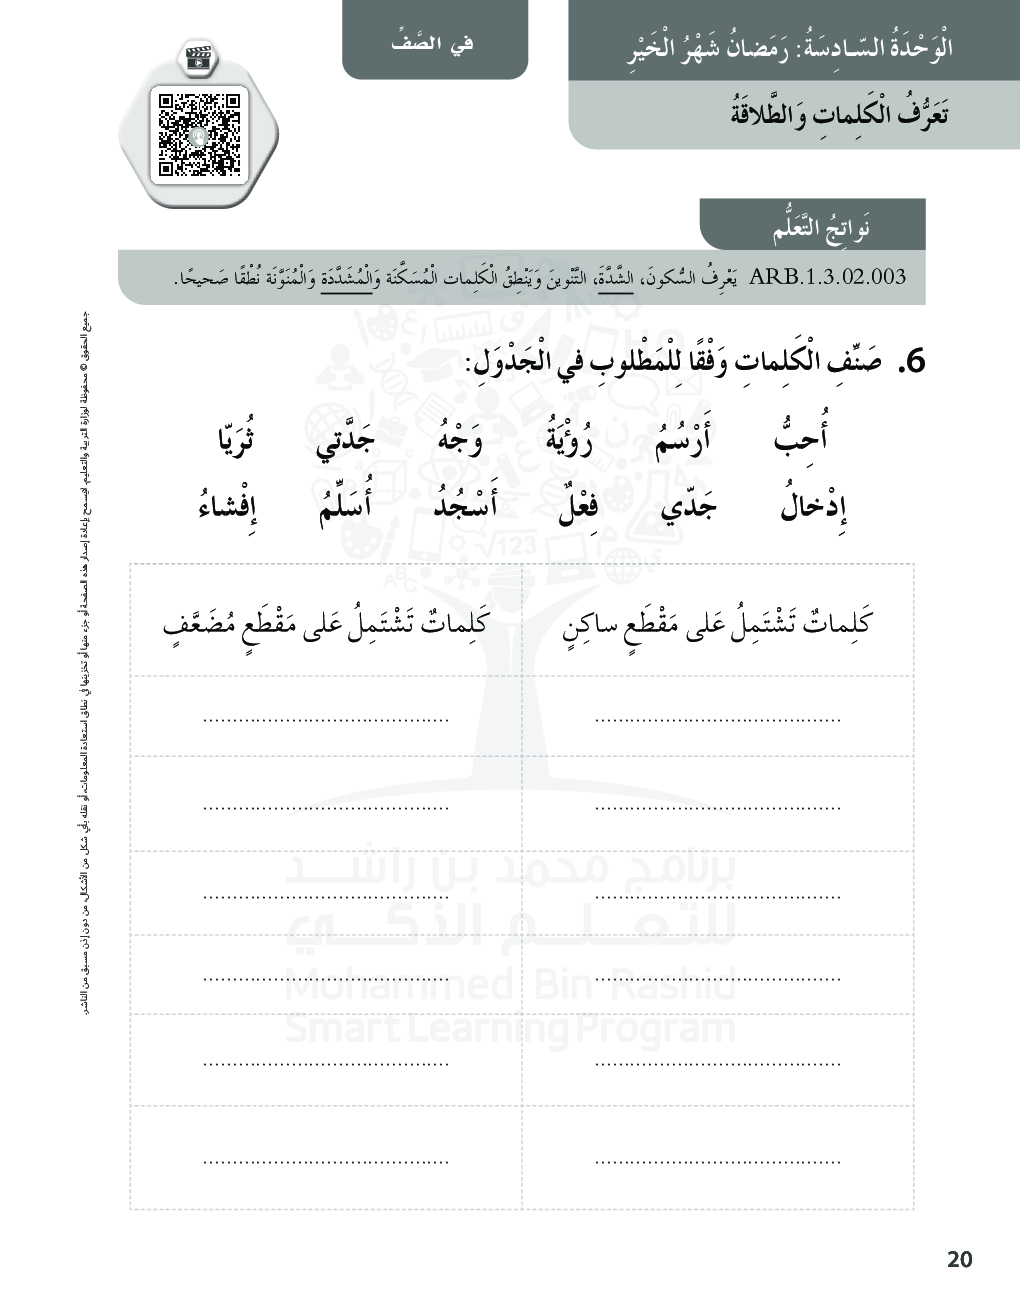 الْوَحْدَةُ السّادِسَةُ: رَمَضانُ شَهْرُ الْخَيْرِ
في الصَّفِّ
تَعَرُّفُ الْكَلِماتِ وَالطَّلاقَةُ
نَواتِجُ التَّعَلُّم
ARB.1.3.02.003 يَعْرِفُ السُّكونَ، الشَّدَّةَ، التَّنْوينَ وَيَنْطِقُ الْكَلِمات الْمُسَكَّنَة وَالْمُشَدَّدَة وَالْمُنَوَّنَة نُطْقًا صَحيحًا.
6. صَنِّفِ الْكَلِماتِ وَفْقًا لِلْمَطْلوبِ في الْجَدْوَلِ:
أُحِبُّ أَرْسُمُ رُؤْيَةُ وَجْهُ جَدَّتي ثُرَيّا
إِدْخالُ جَدّي فِعْلٌ أَسْجُدُ أُسَلِّمُ إِفْشاءُ
كَلِماتٌ تَشْتَمِلُ عَلى مَقْطَعٍ ساكِنٍ
كَلِماتٌ تَشْتَمِلُ عَلى مَقْطَعٍ مُضَعَّفٍ
برنامج محمد بن راشد
للتعلم الذكي
Mohammed Bin Rashid
Smart Learning Program
جميع الحقوق © محفوظة لوزارة التربية والتعليم. لايسمح بإعادة إصدار هذه الصفحة أو جزء منها أو تخزينها في نطاق استعادة المعلومات، أو نقله بأي شكل من الأشكال، من دون إذن مسبق من الناشر.
20